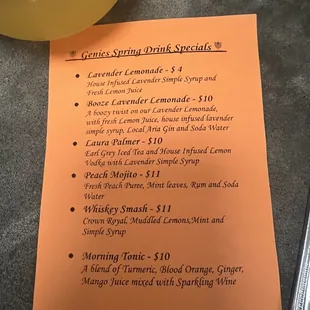 Genies Spring Drink Specials
Lavender Lemonade - $ 4
House Infused Lavender Simple Syrup and
Fresh Lemon Juice
Booze Lavender Lemonade - $10
A boozy twist on our Lavender Lemonade,
with fresh Lemon Juice, house infused lavender
simple syrup, Local Aria Gin and Soda Water
Laura Palmer - $10
Earl Grey Iced Tea and House Infused Lemon
Vodka with Lavender Simple Syrup
Peach Mojito - $11
Fresh Peach Puree, Mint leaves, Rum and Soda
Water
Whiskey Smash - $11
Crown Royal, Muddled Lemons,Mint and
Simple Syrup
Morning Tonic - $10
A blend of Turmeric, Blood Orange, Ginger,
Mango Juice mixed with Sparkling Wine